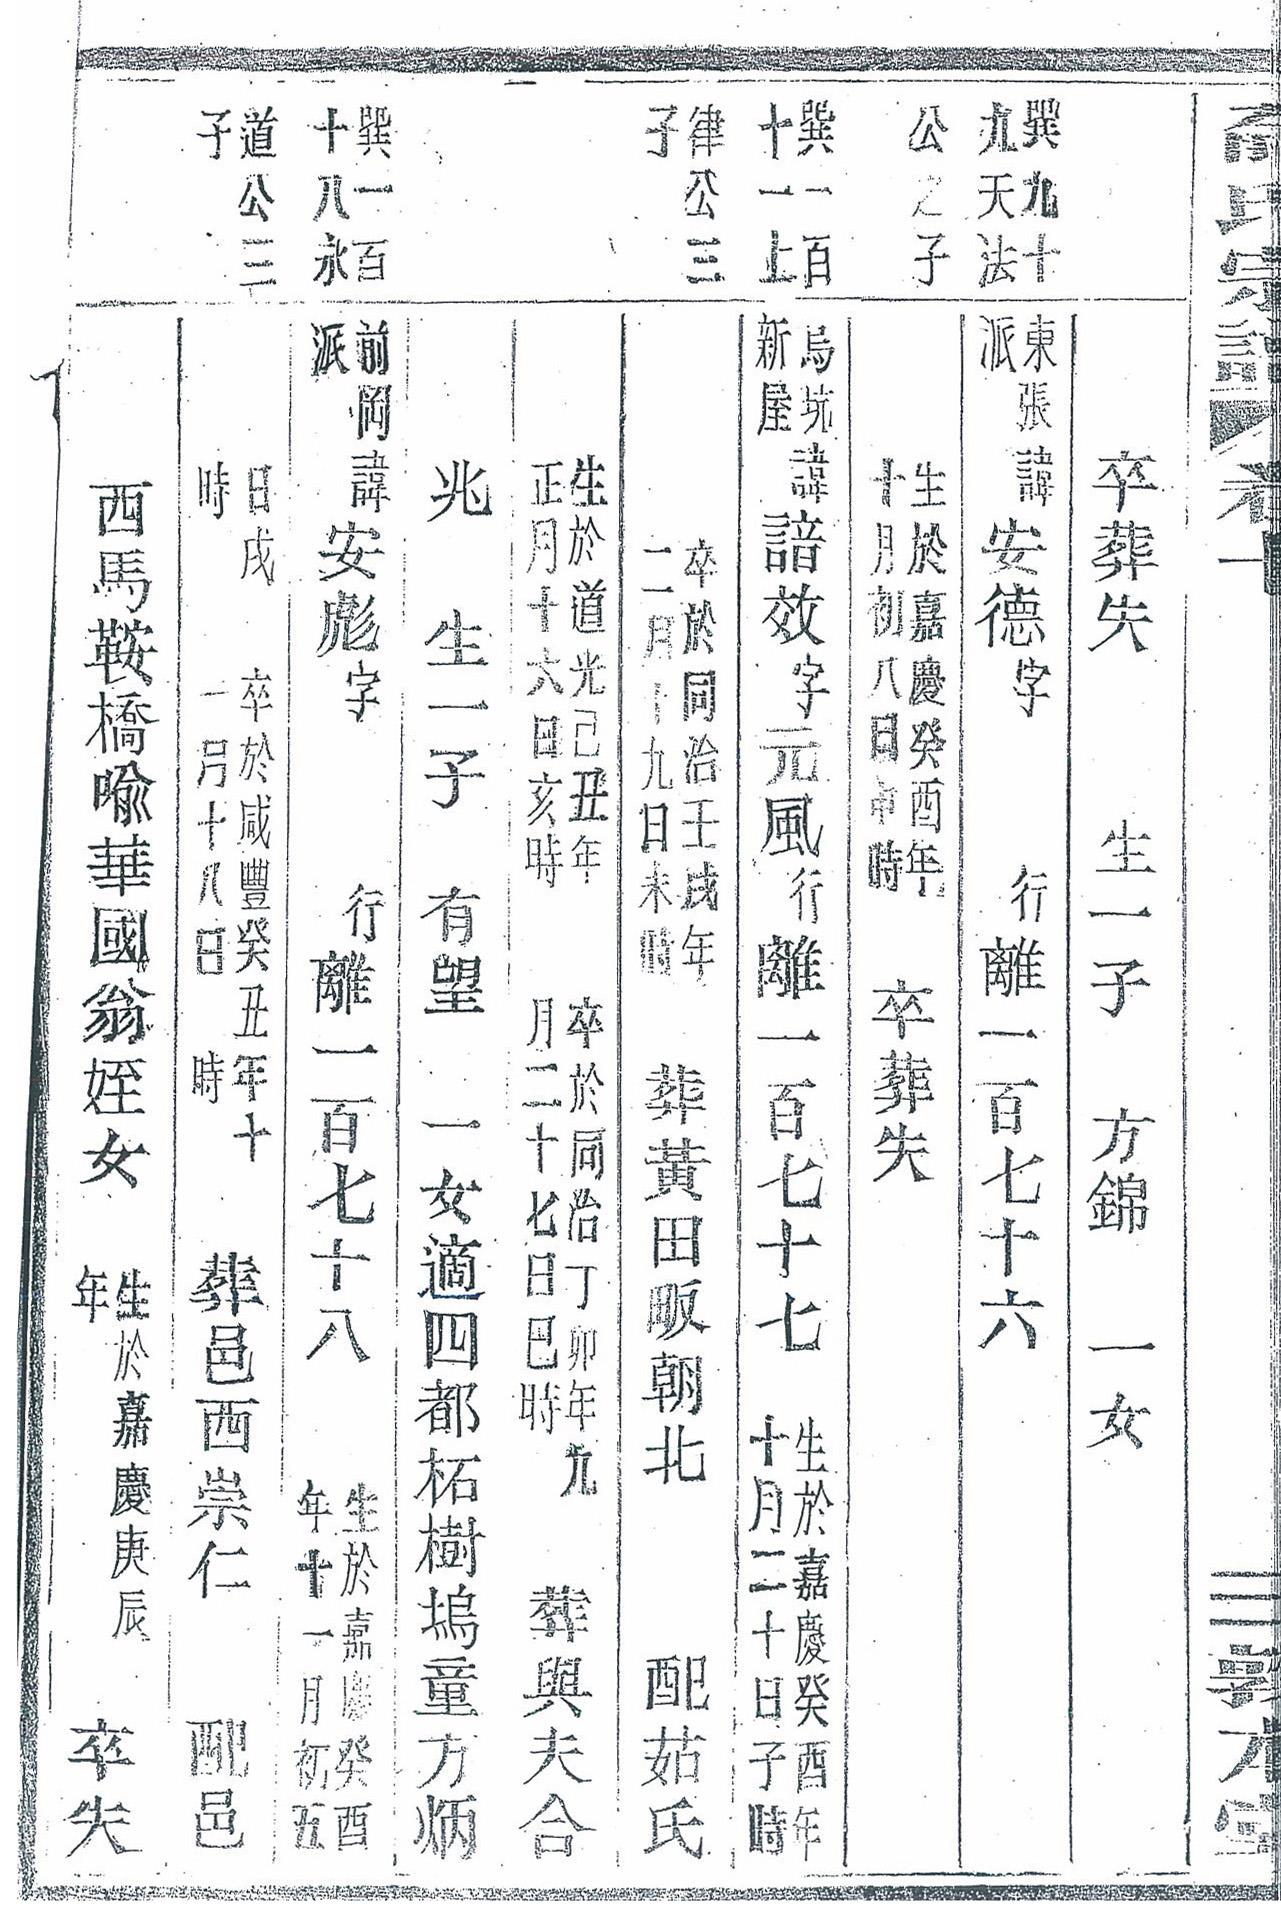 氏宗譜 卷十 三 敦本堂
卒葬失 生一子 方錦 一女
巽九十
九天法
東張諱安德字 行離一百七十六
派
公之子
生於嘉慶癸酉年
十月初八日申時
卒葬失
巽一百
十一上
烏坑諱諳效字元風行離一百七十七
新屋
生於嘉慶癸酉年
十月二十日子時
律公三
子
卒於同治壬戌年
二月十九日未時
葬黃田畈朝北 配姑氏
生於道光己丑年
正月十六日亥時
卒於同治丁卯年九
月二十七日巳時
葬與夫合
兆 生一子 有望 一女適四都柘樹塢童方炳
巽一百
十八永
前岡諱安彪字 行離一百七十八
派
生於嘉慶癸酉
年十一月初五
道公三
子
日戌
時
卒於咸豐癸丑年十
一月十八日 時
葬邑西崇仁 配邑
西馬鞍橋喩華國翁姪女
生於嘉慶庚辰
年
卒失